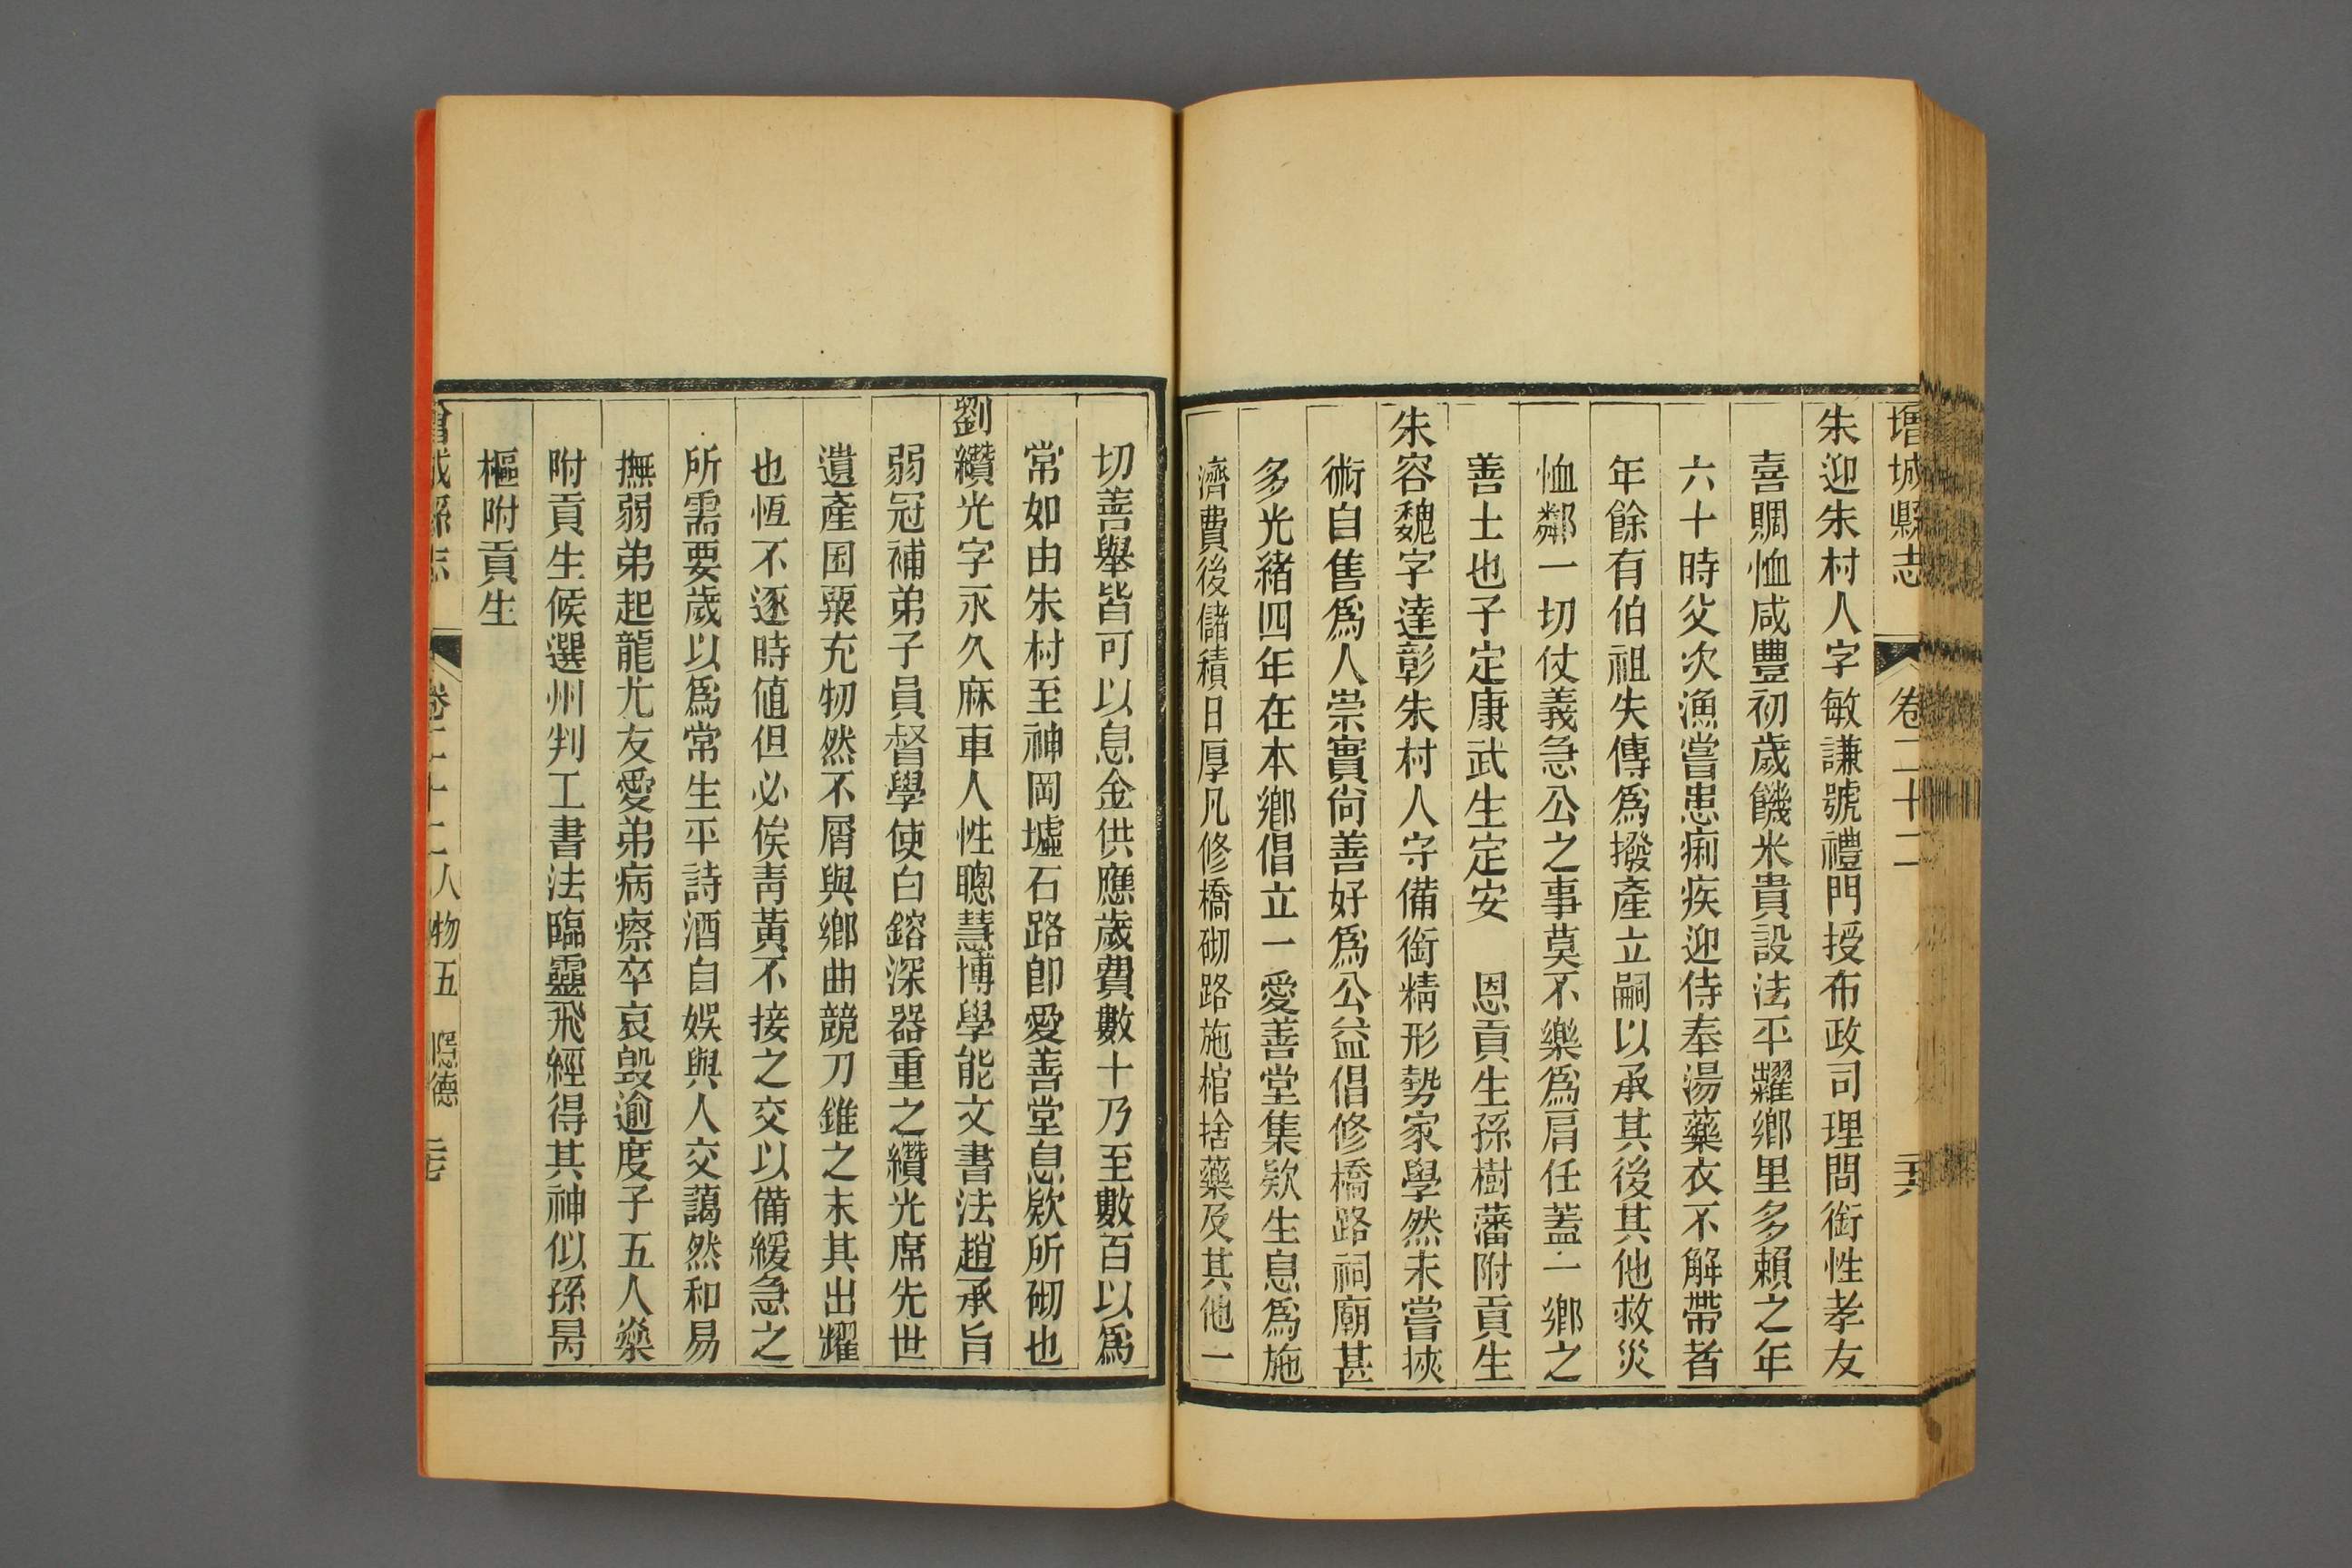 增城縣志 卷二十二 芺
朱迎朱村人字敏謙號禮門授布政司理問銜性孝友
喜賙恤咸豐初歲饑米貴設法平糶鄉里多賴之年
六十時父次漁嘗患痢疾迎侍奉湯藥衣不解帶者
年餘有伯祖失傳爲撥產立嗣以承其後其他救災
恤鄰一切仗義急公之事莫不樂爲肩任蓋一鄉之
善士也子定康武生定安 恩貢生孫樹藩附貢生
朱容魏字達彰朱村人守備銜精形勢家學然未嘗挾
術自售爲人崇實尙善好爲公益倡修橋路祠廟甚
多光緒四年在本鄉倡立一愛善堂集欵生息爲施
濟費後儲積日厚凡修橋砌路施棺捨藥及其他一
切善舉皆可以息金供應歲費數十乃至數百以爲
常如由朱村至神岡墟石路卽愛善堂息欵所砌也
劉纘光字永久麻車人性聰慧博學能文書法趙承旨
弱冠補弟子員督學使白鎔深器重之纘光席先世
遺產囷粟充牣然不屑與鄉曲競刀錐之末其出糶
也恆不逐時値但必俟靑黃不接之交以備緩急之
所需要歲以爲常生平詩酒自娛與人交藹然和易
撫弱弟起龍尤友愛弟病瘵卒哀毀逾度子五人燊
附貢生候選州判工書法臨靈飛經得其神似孫昺
樞附貢生
增城縣志 卷二十二 人物五 隱德